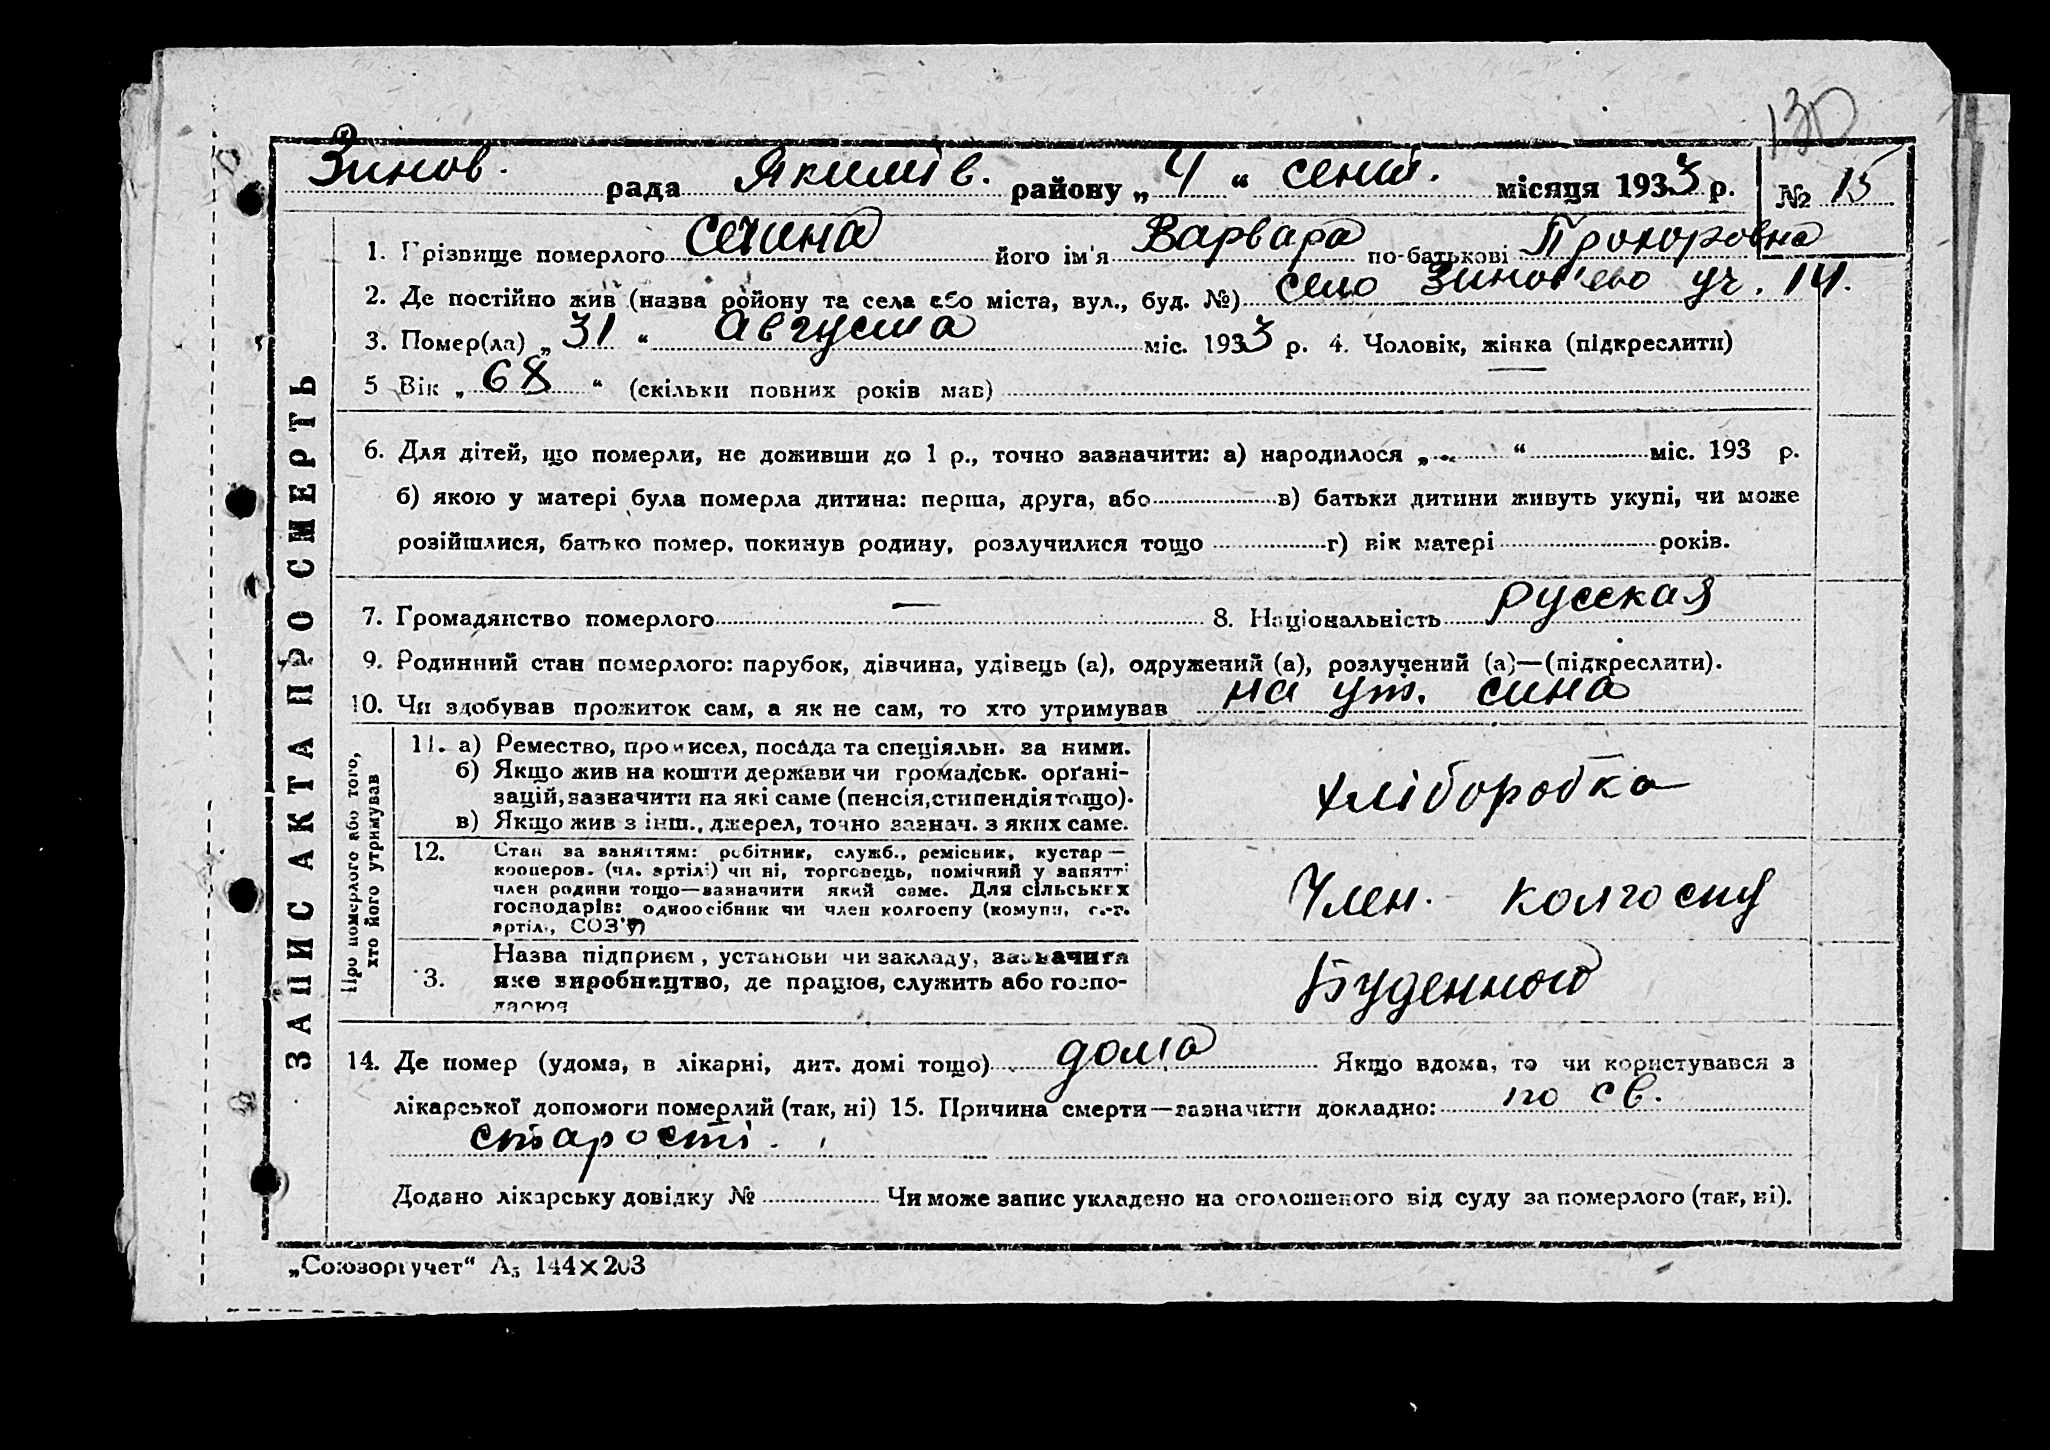 130
Зинов. рада Якимів. району „ 4 “ сент. місяця 1933 р. № 15
ЗАПИС АКТА ПРО СМЕРТЬ
1. Прізвище померлого Сечина його ім'я Варвара по-батькові Прохоровна
2. Де постійно жив (назва району та села або міста, вул., буд. №) село Зиновьево уч. 14.
3. Помер(ла) „ 31 “ августа міс. 1933 р. 4. Чоловік, жінка (підкреслити)
5 Вік „ 68 “ (скільки повних років мав)
6. Для дітей, що померли, не доживши до 1 р., точно зазначити: а) народилося „ “ міс. 193 р.
б) якою у матері була померла дитина: перша, друга, або в) батьки дитини живуть укупі, чи може
розійшлися, батько помер, покинув родину, розлучилися тощо г) вік матері років.
7. Громадянство померлого — 8. Національність русская
9. Родинний стан померлого: парубок, дівчина, удівець (а), одружений (а), розлучений (а)—(підкреслити).
10. Чи здобував прожиток сам, а як не сам, то хто утримував на ут. сина
Про померлого або того,
хто його утримував
11. а) Ремество, промисел, посада та спеціяльн. за ними.
б) Якщо жив на кошти держави чи громадськ. органі-
зацій, зазначити на які саме (пенсія, стипендія тощо).
в) Якщо жив з інш., джерел, точно зазнач. з яких саме.
хліборобка
12. Стан за заняттям: робітник, служб., ремісник, кустар —
кооперов. (чл. артілі) чи ні, торговець, помічний у занятті
член родини тощо—зазначити який саме. Для сільських
господарів: одноосібник чи член колгоспу (комуни, с.-г.
артіл., СОЗ'у)
Член. колгоспу
13. Назва підприєм, установи чи закладу, зазначити
яке виробництво, де працює, служить або госпо-
дарює
Буденного
14. Де помер (удома, в лікарні, дит. домі тощо) дома Якщо вдома, то чи користувався з
лікарської допомоги померлий (так, ні) 15. Причина смерти—зазначити докладно: по св.
старості.
Додано лікарську довідку № Чи може запис укладено на оголошеного від суду за померлого (так, ні).
„Союзоргучет“ А5 144×203